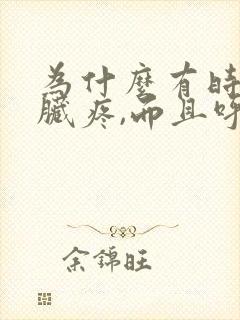 為什麼有時
臟疼,而且呼
余錦旺